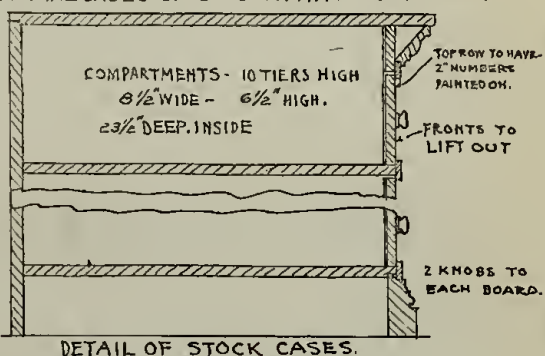 COMPARTMENTS - 10 TIERS HIGH
8 1/2" WIDE - 6 1/2" HIGH.
23 1/2" DEEP. INSIDE
TOP ROW TO HAVE
2" NUMBERS
PAINTED ON.
FRONTS TO
LIFT OUT
2 KNOBS TO
EACH BOARD.
DETAIL OF STOCK CASES.